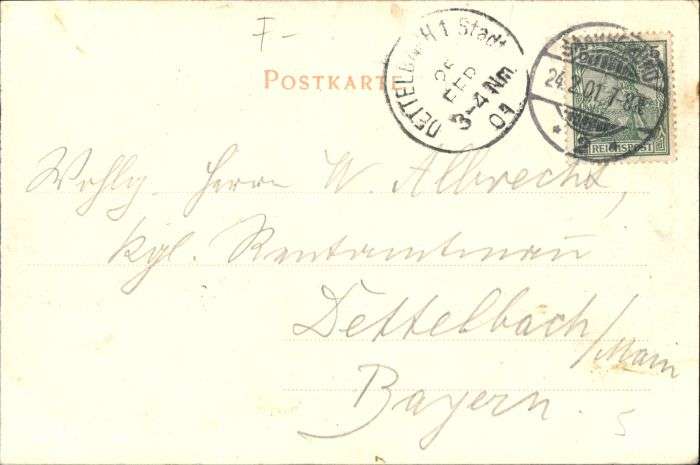 F-
POSTKARTE
DETTELBACH 1 Stadt
25
FEB
3-4 Nm.
01
24.2.01.7-8N.
* 2 a
REICHSPOST
Wohlg. Herrn W. Albrecht,
Kgl. Rentamtmann
Dettelbach
/Main
Bayern.
5